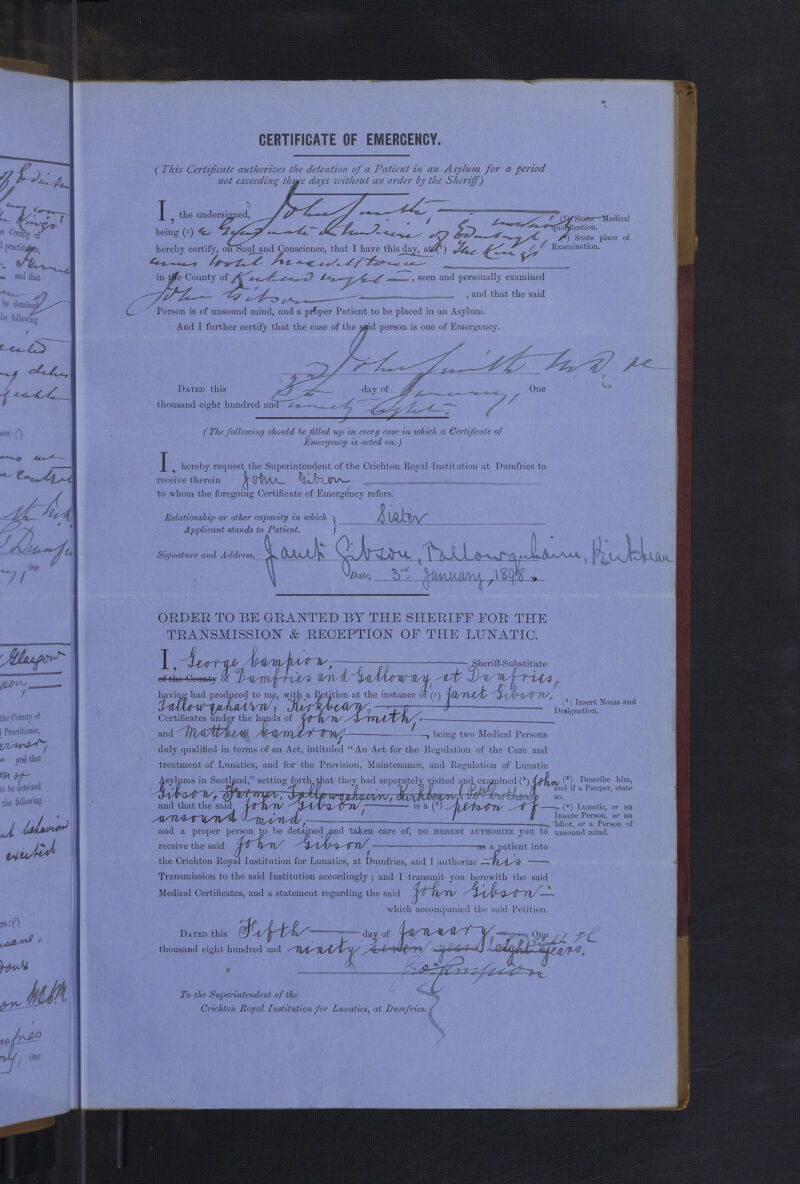 CERTIFICATE OF EMERGENCY.
( This Certificate authorizes the detention of a Patient in an Asylum for a period
not exceeding three days without an order by the Sheriff)
I, the undersigned, John Smith,
(1) State Medical
qualification.
being (1) a Graduate in Medicine of Edinburgh University
(2) State place of
Examination.
hereby certify, on Soul and Conscience, that I have this day, at (2) The King's
Arms Hotel Maxwelltown
in the County of Kirkcudbright, seen and personally examined
John Gibson, and that the said
Person is of unsound mind, and a proper Patient to be placed in an Asylum.
And I further certify that the case of the said person is one of Emergency.
John Smith M.D.
DATED this 3rd day of January, One
thousand eight hundred and ninety eight.
(The following should be filled up in every case in which a Certificate of
Emergency is acted on.)
I, hereby request the Superintendent of the Crichton Royal Institution at Dumfries to
receive therein John Gibson
to whom the foregoing Certificate of Emergency refers.
Relationship or other capacity in which } Sister
Applicant stands to Patient.
Signature and Address, Janet Gibson, Tallowquhairn, Kirkbean
Date, 3rd January, 1898.
ORDER TO BE GRANTED BY THE SHERIFF FOR THE
TRANSMISSION & RECEPTION OF THE LUNATIC.
I, George Campion, Sheriff-Substitute
of the County of Dumfries and Galloway at Dumfries,
having had produced to me, with a Petition at the instance of (1) Janet Gibson,
(1) Insert Name and
Designation.
Tallowquhairn, Kirkbean,
Certificates under the hands of John Smith,
and Matthew Cameron, being two Medical Persons
duly qualified in terms of an Act, intituled "An Act for the Regulation of the Care and
treatment of Lunatics, and for the Provision, Maintenance, and Regulation of Lunatic
Asylums in Scotland," setting forth that they had separately visited and examined (2) John
(2) Describe him,
and if a Pauper, state
so.
Gibson, Farmer, Tallowquhairn, Kirkbean (Petrs brother)
and that the said John Gibson, is a (3) person of
(3) Lunatic, or an
Insane Person, or an
Idiot, or a Person of
unsound mind.
unsound mind,
and a proper person to be detained and taken care of, DO HEREBY AUTHORIZE you to
receive the said John Gibson, as a patient into
the Crichton Royal Institution for Lunatics, at Dumfries, and I authorize his
Transmission to the said Institution accordingly ; and I transmit you herewith the said
Medical Certificates, and a statement regarding the said John Gibson
which accompanied the said Petition.
DATED this Fifth day of January One
thousand eight hundred and ninety seven years eight years.
Geo Campion
To the Superintendent of the
Crichton Royal Institution for Lunatics, at Dumfries.